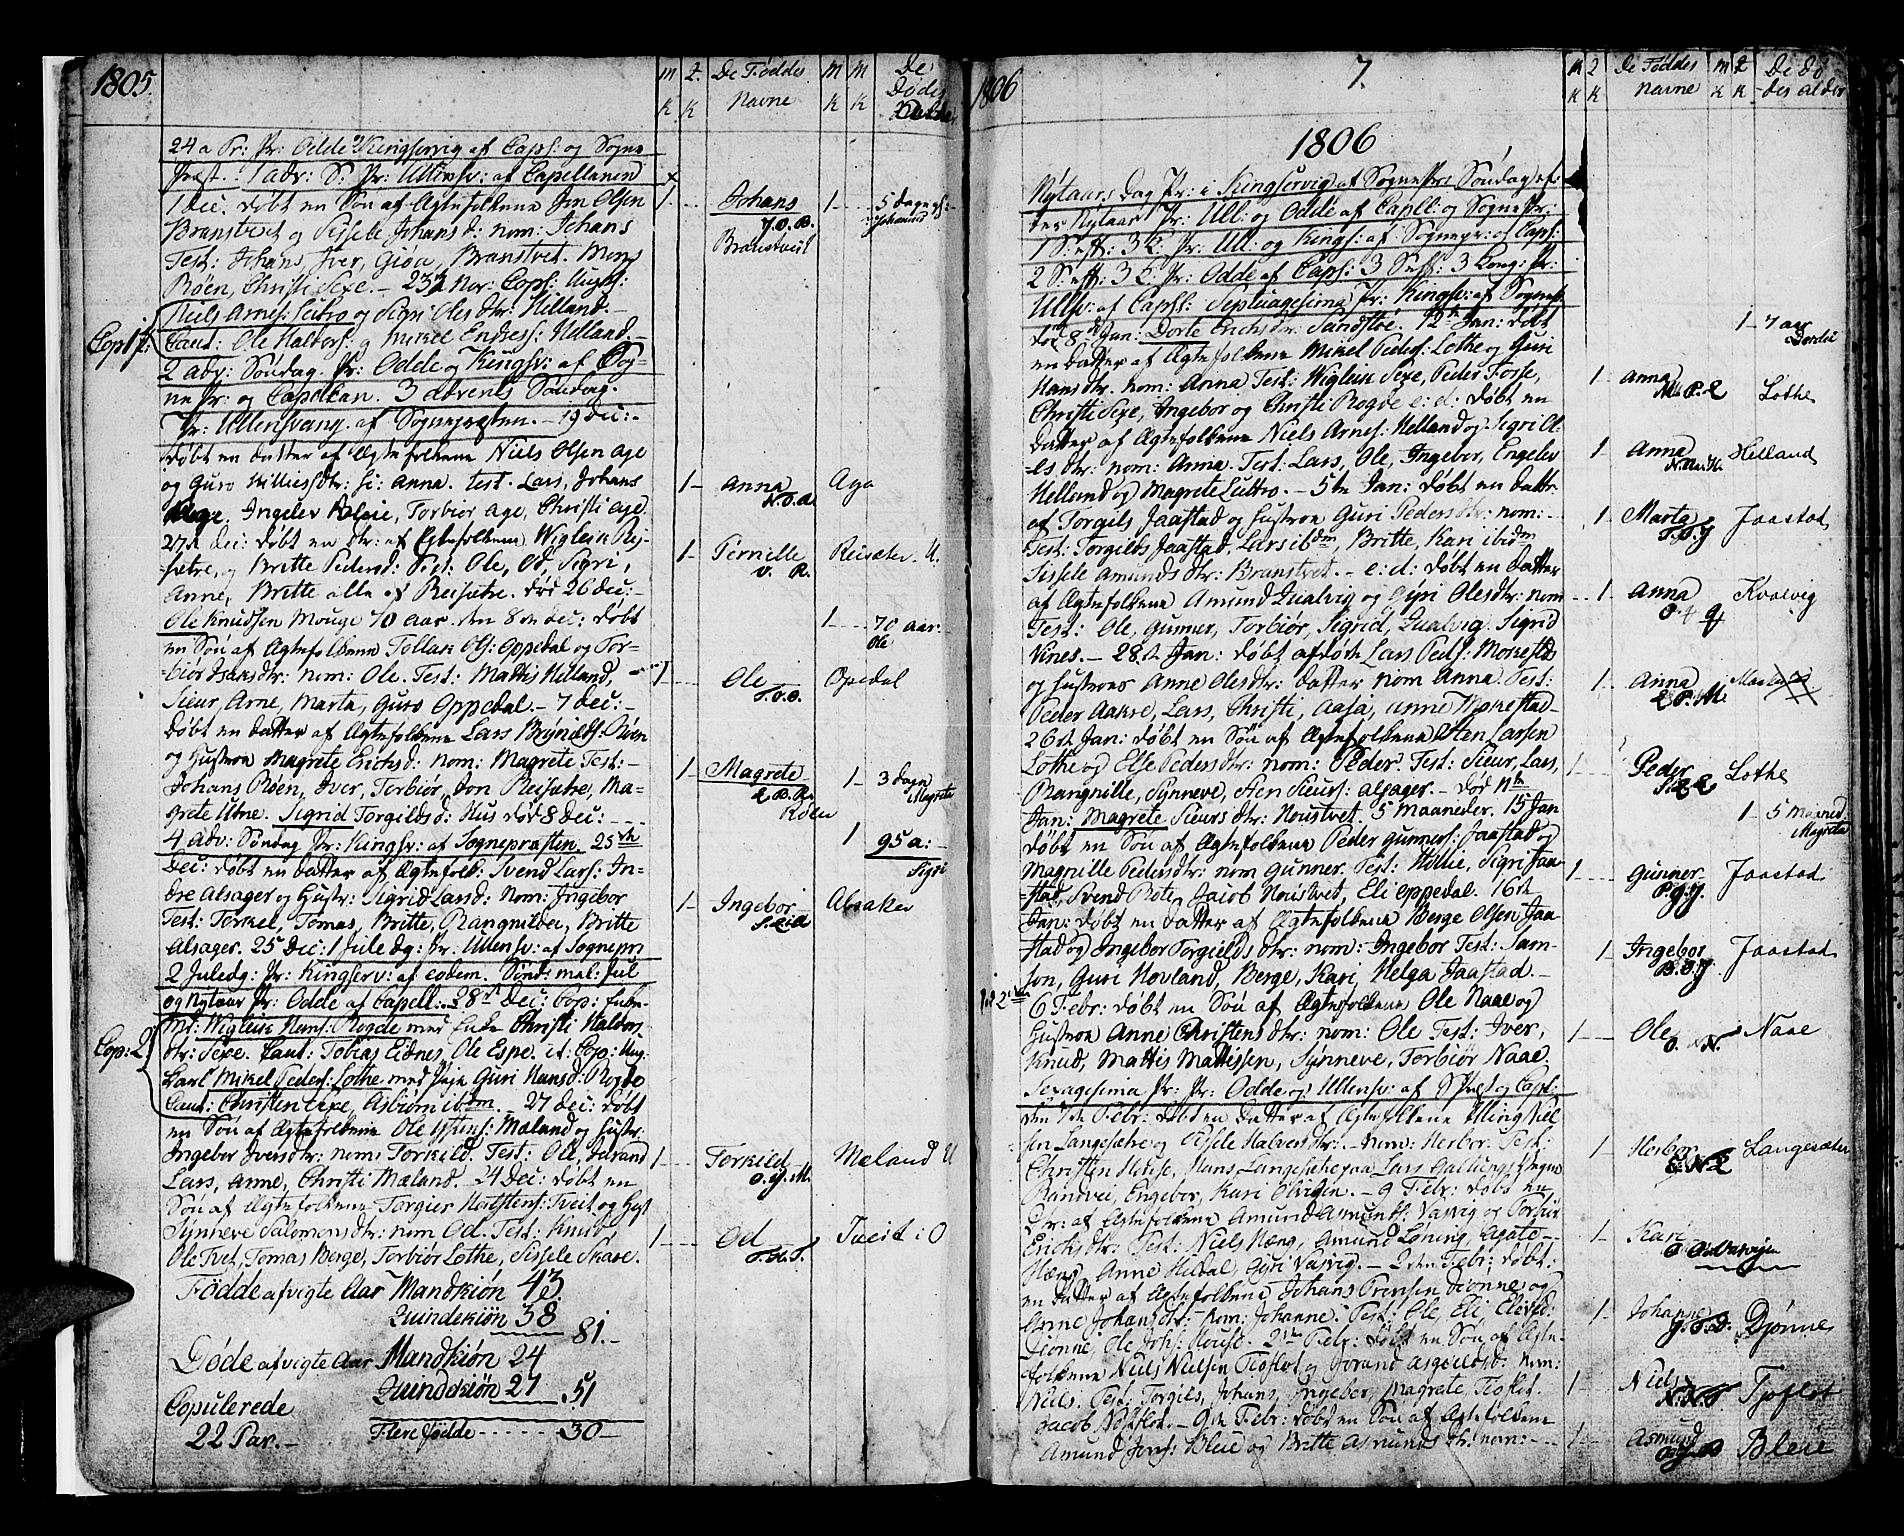 1805
m k
2 k
De Føddes Navne
M k
M k
De Dødes Alder
24 a Tr: Pr: Odde og Kingservig af Caps: og Sogne
Præst. 1 adv: S: Pr: Ullensv: af Capellanen
1 Dec. døbt en Søn af Ægtefolkene Jon Olsen
Branstvet og Sissele Johans d: nom: Johans
Test: Johans, Iver, Giøa, Branstvet. Mons
Røen, Christi Sexe. - 23 Nov: Cop: Ungk:
Niels Arnes: Lutro og Sigri Oles dtr: Helland. -
Caut: Ole Halvors: og Mikel Endres: Helland. -
2 adv: Søndag. Pr: Odde og Kingsv: af Sog-
ne Pr: og Capellan. 3 advents Søndag.
Pr: Ullensvang af Sognepræsten. - 19 Dec: -
døbt en datter af Ægtefolkene Niels Olsen Age
og Guro Willicsdtr: h: Anna. Test. Lars, Johans
Age, Ingelev Bleie, Torbiør Age, Christi Age.
27d Dec: døbt en dtr: af Ægtefolkene Wiglein Rei-
sætre, og Britte Pedersd: Test: Ole, Od, Sigri,
Anne, Britte alle af Reisætre. død 26 Dec: -
Ole Knudsen Mouge 70 aar. den 8de Dec: døbt
en Søn af Ægtefolkene Tollak Ols: Oppedal og Tor-
biør Isaksdtr: nom: Ole. Test: Mattis Helland,
Sieur, Arne, Marta, Guro Oppedal. - 7 Dec: -
døbt en datter af Ægtefolkene Lars Brynilds: Røen
og Hustroe Magrete Erichsd: nom: Magrete Test: -
Johans Røen, Iver, Torbiør, Jon Reisætre, Ma-
grete Utne. Sigrid Torgildsd: Hus død 8 Dec: -
4 adv: Søndag Pr: Kingsv: af Sognepræsten. 25de
Dec: døbt en datter af Ægtefolk: Svend Lars: In-
dre Alsager og Hustr: Sigrid Larsd: Nom: Ingebor
Test: Torkel, Tomas, Britte, Rangnilder, Britte
Alsager. 25 Dec: 1 Juledg: Pr: Ullensv: af Sognepr:
2 Juledg: Pr: Kingserv: af eodem. Sönd: mel: Jul
og Nytaar Pr: Odde af Capell: 28d Dec: Cop:
Wiglein Hans: Rogde med Christi Halvors
dtr: Sexe. Caut: Tobias Eidnes, Ole Espe. it: Cop: Ung
Carl Mikel Peders: Lothe med Pige Guri Hansd: Rogde
Caut: Christen Sexe, Asbiørn ibdm. - 27 Dec: døbt
en Søn af Ægtefolkene Ole Mæland og Hustr:
Ingebor Iversdtr: nom: Torkild. Test: Ole, Jorand
Lars, Anne, Christi Mæland. - 24 Dec: døbt en
Søn af Ægtefolkene Torgier Tveit og Hust
Synneve Salomonsdtr: nom Od. Test: Knud,
Ole Tvet, Tomas Berge, Torbiør Lothe, Sissele Skare.
Cop: 1 p:
Cop: 2
Fødde afvigte Aar Mandkiøn 43
Quindekiøn 38
81. -
Døde afvigte Aar Mandkiøn 24
Quindekiøn 27
51
Copulerede
22 Par. -
Flere fødde ----- 30 -
1 Johans J.O.B. Branstveit
1 5 dage gl: Johannes
1 Anna N.O.A. Aga
1 Pernille V.R. Reisæter. U.
1 70 aar. Ole
1 Ole T.O.O. Opedal
1 Magrete L.B.R. Røen
1 3 dage Magreta
1 95 a: Sigri
1 Ingebor Alsaker
1 Torkild O. M. Mæland U
1 Od T.H.T. Tveit i O
1806
7.
De Føddes Navne
De Dødes alder
1806
Nytaars Dag Pr: i Kingservig af SognePr: Søndag ef-
ter Nytaar Pr: Ull: og Odde af Capll: og SognePr:
1 S: eft: 3 K: Pr: Ull: og Kings: af Sognepr: af Caps:
2 S: eft: 3 K Pr: Odde af Caps: 3 S: eft: 3 Kong: Pr:
Ullsv: af Capll: Septuagesima Pr: Kingsv: af Sognepr:
død 8de Jan: Dorte Erichsdtr: Sandstøe. 12te Jan: døbt
en datter af Ægtefolkene Mikel Peders: Lothe og Guri
Hansdtr. nom: Anna Test: Wiglein Sexe, Peder Fosse,
Christi Sexe, Ingebor og Christi Rogde e: d: døbt en
datter af Ægtefolkene Niels Arnes: Helland og Sigri Ol-
es dtr: nom: Anna. Test: Lars, Ole, Ingebor, Engelev
Helland og Magrete Lutro. - 5te Jan: døbt en dattr
af Torgils Jaastad og Hustroe Guri Pedersdtr: nom: -
Test: Torgilds Jaastad, Lars ibdm, Britte, Kari ibidm
Sissele Amundsdtr: Branstvet. - e: d: døbt en datter
af Ægtefolkene Amund Qualvig og Siri Olesdtr: nom
Test: Ole, Gunner, Torbiør, Sigrid, Qualvig. Sigrid
Vines. - 28de Jan: døbt afdøde Lars Peds: Mokestds
og Hustroes Anne Olesdtr: datter nom Anna. Test:
Peder Aakre, Lars, Christi, Aasa, Anne Mokestad -
26de Jan: døbt en Søn af Ægtefolkene Sten Larsen
Lothe og Else Pedersdtr: nom: Peder. Test: Sieur, Lars,
Rangnille, Synneve, Sten Sieurs: Alsager. - død 11te
Jan: Magrete Sieursdtr: Noustvet. 5 Maaneder. 15 Jan
døbt en Søn af Ægtefolkene Peder Gunners: Jaastad og
Magnille Pedersdtr: nom Gunner. Test: Hellie, Sigri Jaa-
stad, Svend Rote, Jacob Noustvet, Eli Oppedal. 16de
Jan: døbt en datter af Ægtefolkene Berge Olsen Jaa
stad og Ingebor Torgildsdtr: nom: Ingebor Test: Sam-
son, Guri Hovland, Berge, Kari, Helga Jaastad. -
6 Febr: døbt en Søn af Ægtefolkene Ole Naae og
Hustroe Anne Christensdtr: nom: Ole Test: Iver,
Knud, Mattis Mattissen, Synneve, Torbiør Naae.
Sexagesima Pr: Pr: Odde og Ullensv: af SPræst og Capl:
den 7de Febr: døbt en Datter af Ægtefolkene Elling Niel
sen Langesætre og Sissele Halversdtr: - nom: Herbor: Test:
Christen House, Hans Langesætre paa Lars Galtung:
Randvei, Engebor, Kari - 9 Febr: døbt en
dtr: af Ægtefolkene Amund Amunds: Vasvig og Torbiør
Erichsdtr: Test: Niels Hæng, Amund Lóning, Agate -
Hæng, Anne Hildal, Guri Vasvig. - 2den Febr: døbt:
en datter af Ægtefolkene Johans Torensen Diønne og
Anne Johansdtr: - nom: Johanne: Test: Ole, Eli,
Diønne, Ole Johs: House. 2den Febr: døbt en Søn af Ægte-
folkene Niels Nielsen Tiøflot og Jorand Asgeildsd: nom:
Niels. Test: Torgils, Johans, Ingebor, Magrete, Tioflot.
Jacob Tioflot. - 9de Febr: døbt en Søn af Ægtefolkene
Amund Jons: Bleie og Britte Asmundsdtr: nom: -
1 7 aar Dordei
1 Anna M.P.L Lothe
1 Anna N.A.H. Helland
1 Marta T.T.J Jaastad
1 Anna Kvalvig
1 Anna L.P.M.
1 Peder S.L.L Lothe
1 5 Maaned: Magreta
1 Gunner P.G.J. Jaastad
1 Ingebor B.O.J. Jaastad
1 Ole O. N. Naae
1 Herbor E.N.L Langesæter
1 Kari Vasvigen
1 Johanne J.T.D. Djønne
1 Niels N.N.T Tjoflot
1 Asmund Bleie